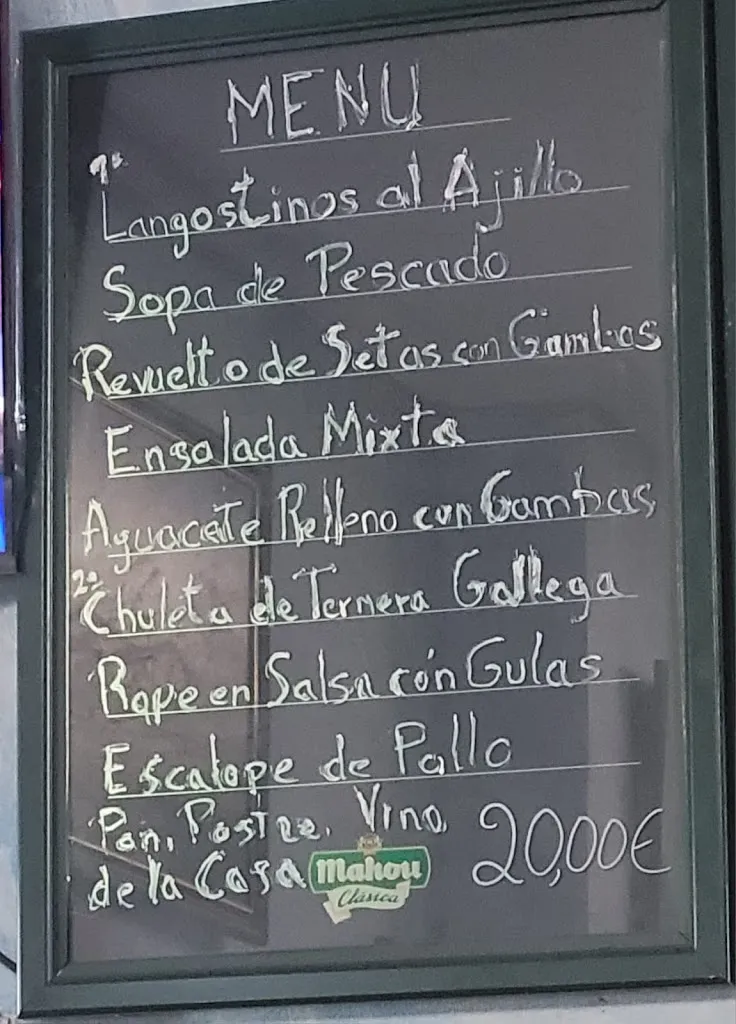 MENU
1º
Langostinos al Ajillo
Sopa de Pescado
Revuelto de Setas con Gambas
Ensalada Mixta
Aguacate Relleno con Gambas
2º
Chuleta de Ternera Gallega
Rape en Salsa con Gulas
Escalope de Pollo
Pan, Postre, Vino
de la Casa 20,00€
Mahou
Clásica